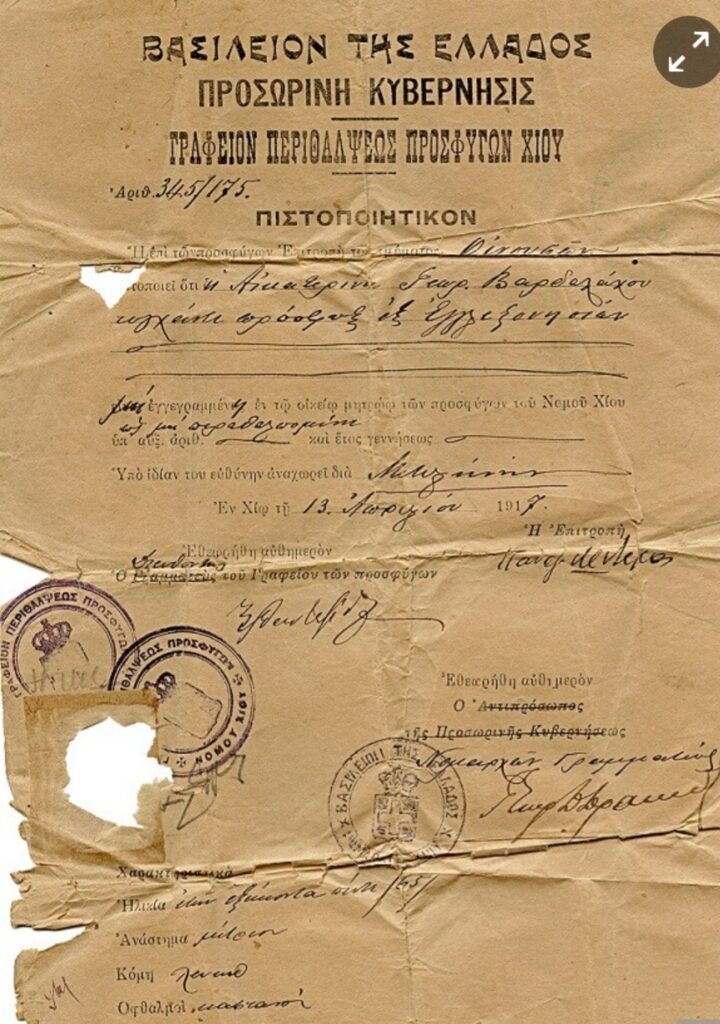 ΒΑΣΙΛΕΙΟΝ ΤΗΣ ΕΛΛΑΔΟΣ
ΠΡΟΣΩΡΙΝΗ ΚΥΒΕΡΝΗΣΙΣ
ΓΡΑΦΕΙΟΝ ΠΕΡΙΘΑΛΨΕΩΣ ΠΡΟΣΦΥΓΩΝ ΧΙΟΥ
Ἀριθ. 345/175.
ΠΙΣΤΟΠΟΙΗΤΙΚΟΝ
Ἡ ἐπὶ τῶν προσφύγων Ἐπιτροπὴ τοῦ τμήματος Οἰνουσῶν
τοποιεῖ ὅτι ἡ Αἰκατερίνη Γεωρ. Βαρδαλάχου
τυγχάνει πρόσφυξ ἐξ
μὴ ἐγγεγραμμένη ἐν τῷ οἰκείῳ μητρώῳ τῶν προσφύγων τοῦ Νομοῦ Χίου
ὡς μὴ περιθαλπομένη
ὑπ' αὔξ. ἀριθ. καὶ ἔτος γεννήσεως
Ὑπὸ ἰδίαν του εὐθύνην ἀναχωρεῖ διὰ Μυτιλήνην
Ἐν Χίῳ τῇ 13 Ἀπριλίου 1917.
Ἡ Ἐπιτροπὴ
Ἐθεωρήθη αὐθημερὸν
Διευθυντὴς
Ὁ Γραμματεὺς τοῦ Γραφείου τῶν προσφύγων
ΓΡΑΦΕΙΟΝ ΠΕΡΙΘΑΛΨΕΩΣ ΠΡΟΣΦΥΓΩ
ΘΑΛΨΕΩΣ ΠΡΟΣΦΥΓΩΝ
ΝΟΜΟΥ ΧΙΟΥ
Ἐθεωρήθη αὐθημερὸν
Ὁ Ἀντιπρόσωπος
τῆς Προσωρινῆς Κυβερνήσεως
Νομαρχῶν Γραμματεὺς
ΒΑΣΙΛΕΙΟΝ ΤΗΣ ΕΛΛΑΔΟΣ
Χαρακτηριστικὰ
Ἡλικία ἐτῶν ἑξήκοντα πέντε /65/
Ἀνάστημα μέτριον
Κόμη λευκὴ
Ὀφθαλμοὶ καστανοὶ